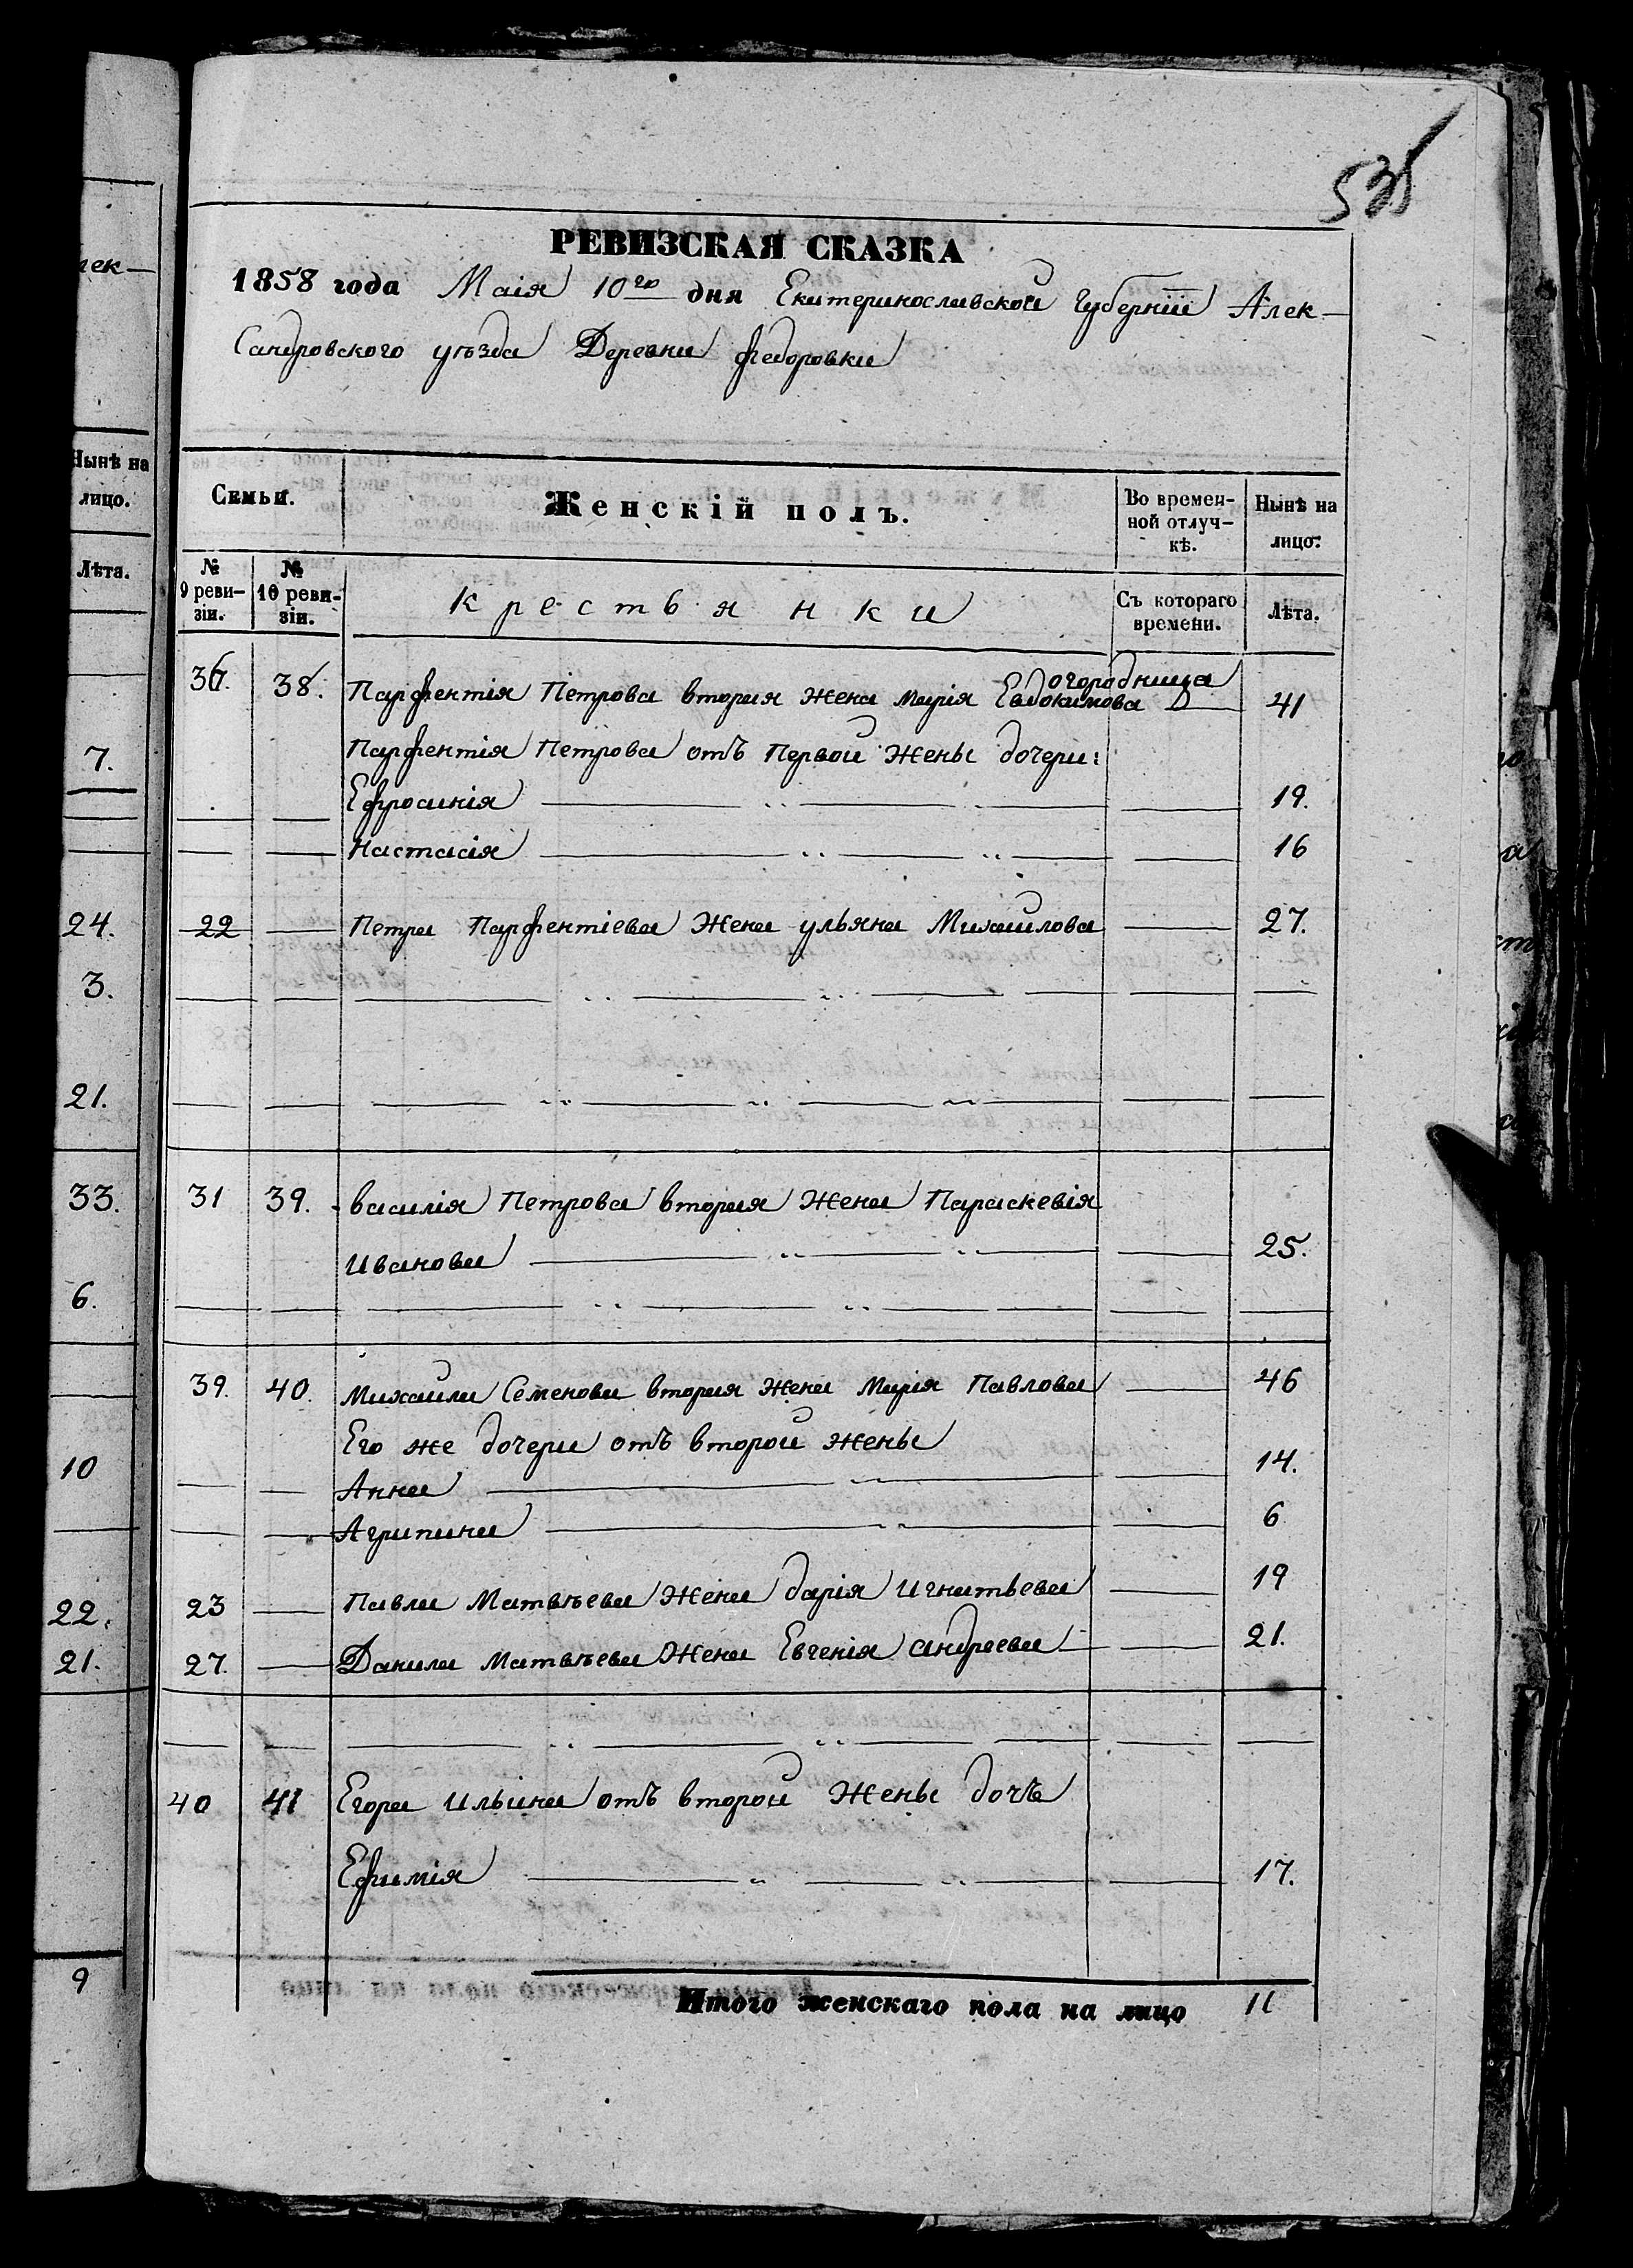 535
РЕВИЗСКАЯ СКАЗКА
1858 года Маія 10го дня Екатеринославской Губерніи Алек-
сандровского уѣзда Деревни Федоровки
Семьи.
Женскій полъ.
Во времен-
ной отлуч-
кѣ.
Нынѣ на
лицо.
№
9 реви-
зіи.
№
10 реви-
зіи.
Крестьянки
Съ котораго
времени.
Лѣта.
огородница
36. 38. Парфентія Петрова вторая жена Марія Евдокимова 41
Парфентія Петрова отъ Первой жены дочери:
Ефросинія 19.
Настасія 16
22 Петра Парфентіева жена ульяна Михайлова 27.
31 39. Василія Петрова вторая жена Параскевія
Иванова 25.
39. 40. Михайла Семенова вторая жена Марія Павлова 46
Его же дочери отъ второй жены
Анна 14.
Агрипина 6
23 Павла Матвѣева жена дарія Игнатьева 19
27. Данила Матвѣева жена Евгенія андреева 21.
40 41 Егора Ильина отъ второй жены дочь
Ефимія 17.
Итого женскаго пола на лицо 11
лек-
Нынѣ на
лицо.
Лѣта.
7.
24.
3.
21.
33.
6.
10
22.
21.
9